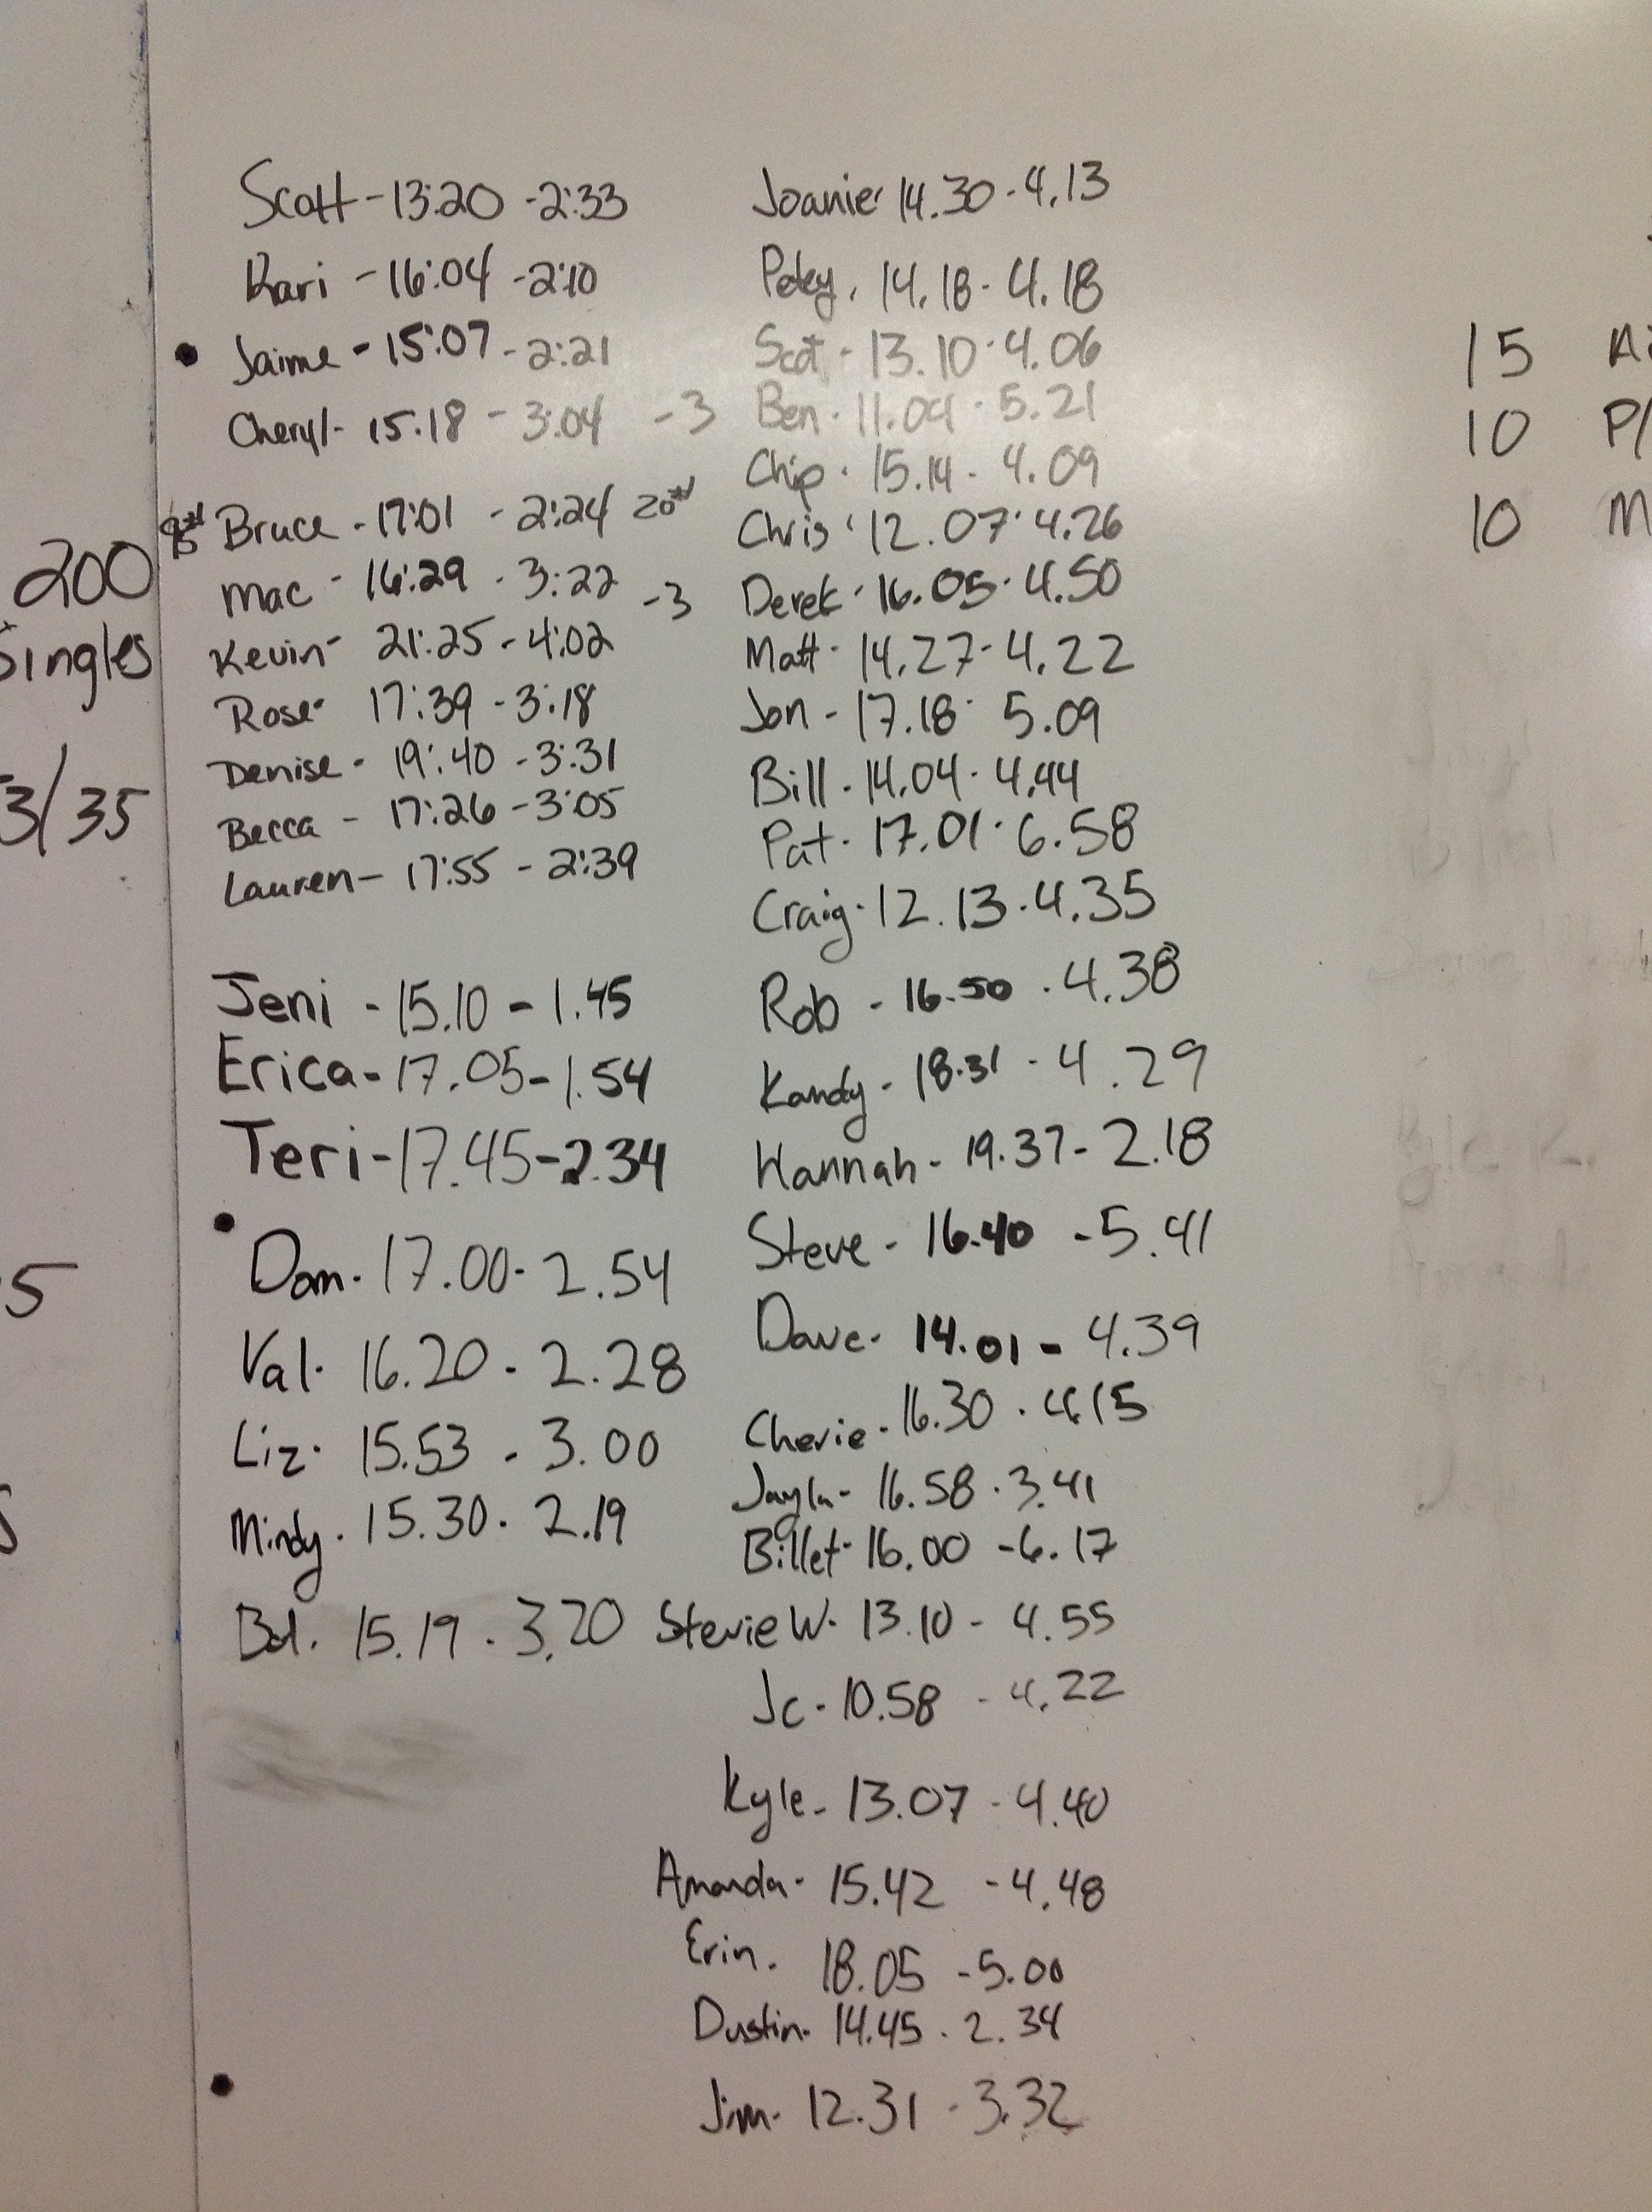 Scott - 13:20 - 2:33
Kari - 16:04 - 2:10
Jaime - 15:07 - 2:21
Cheryl - 15:18 - 3:04 - 3
Bruce - 17:01 - 2:24 20#
Mac - 16:29 - 3:22 - 3
Kevin - 21:25 - 4:02
Rose - 17:39 - 3:18
Denise - 19:40 - 3:31
Becca - 17:26 - 3:05
Lauren - 17:55 - 2:39
Jeni - 15.10 - 1.45
Erica - 17.05 - 1.54
Teri - 17.45 - 2.34
Dom - 17.00 - 2.54
Val - 16.20 - 2.28
Liz - 15.53 - 3.00
Mindy - 15.30 - 2.19
15.19 - 3.20
Joanie - 14.30 - 4.13
14.18 - 4.18
Scot - 13.10 - 4.06
Ben - 11.09 - 5.21
Chip - 15.14 - 4.09
Chris - 12.07 - 4.26
Derek - 16.05 - 4.50
Matt - 14.27 - 4.22
Jon - 17.18 - 5.09
Bill - 14.04 - 4.44
Pat - 17.01 - 6.58
Craig - 12.13 - 4.35
Rob - 16.50 - 4.38
Kandy - 18.31 - 4.29
Hannah - 19.37 - 2.18
Steve - 16.40 - 5.41
Dave - 14.01 - 4.39
Cherie - 16.30 - 4.15
Jayla - 16.58 - 3.41
Billet - 16.00 - 6.17
Stevie W - 13.10 - 4.55
Jc - 10.58 - 4.22
Kyle - 13.07 - 4.40
Amanda - 15.42 - 4.48
Erin - 18.05 - 5.00
Dustin - 14.45 - 2.34
Jim - 12.31 - 3.32
200
Singles
3/35
5
15
10 P/
10 M